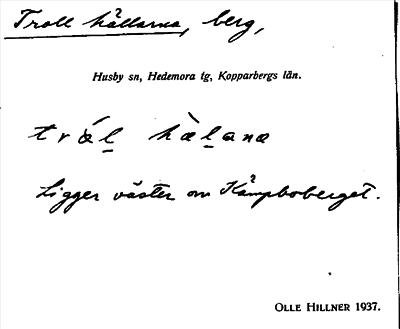 Troll hällarna, berg,
Husby sn, Hedemora tg, Kopparbergs län.
trål hàlana
Ligger väster om Kämpboberget.
OLLE HILLNER 1937.